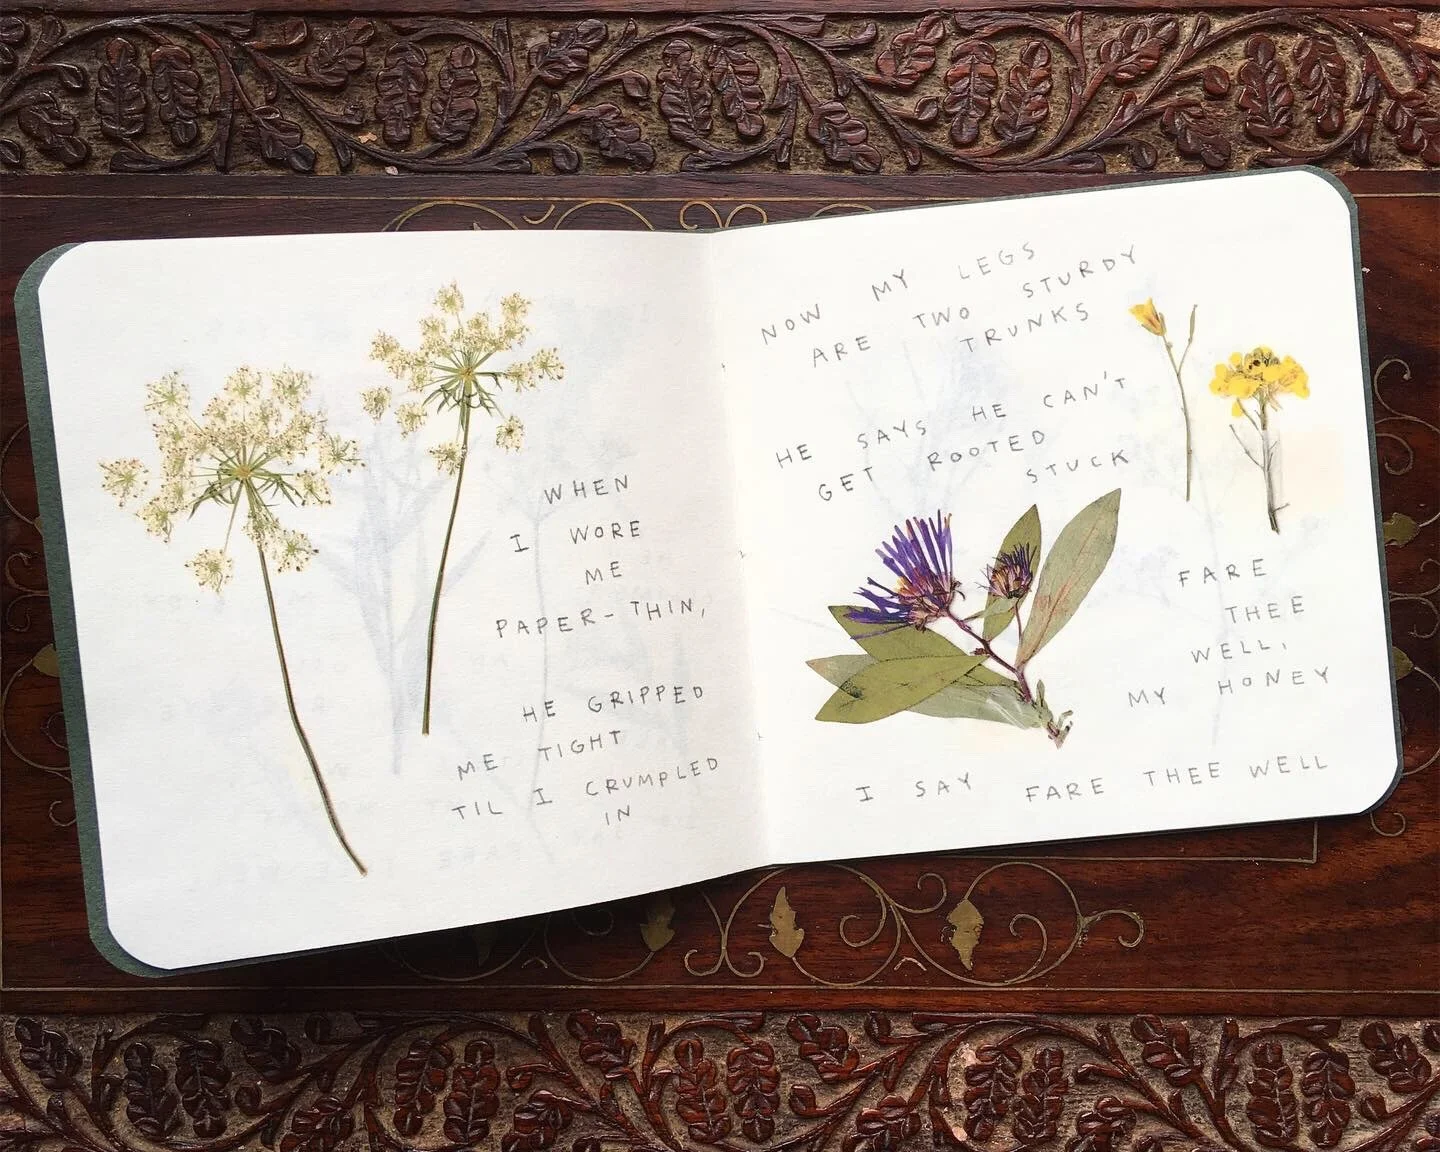 WHEN
I WORE
ME
PAPER-THIN,
HE GRIPPED
ME TIGHT
TIL I CRUMPLED
IN
NOW MY LEGS
ARE TWO STURDY
TRUNKS
HE SAYS HE CAN'T
GET ROOTED
STUCK
FARE
THEE
WELL,
MY HONEY
I SAY FARE THEE WELL